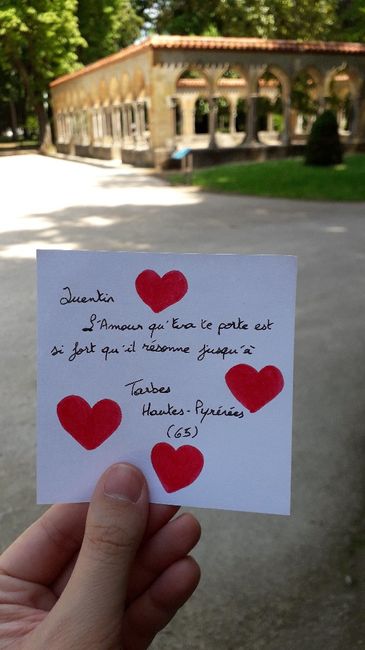 Quentin
L'Amour qu'Eva te porte est
si fort qu'il résonne jusqu'à
Tarbes
Hautes-Pyrénées
(65)